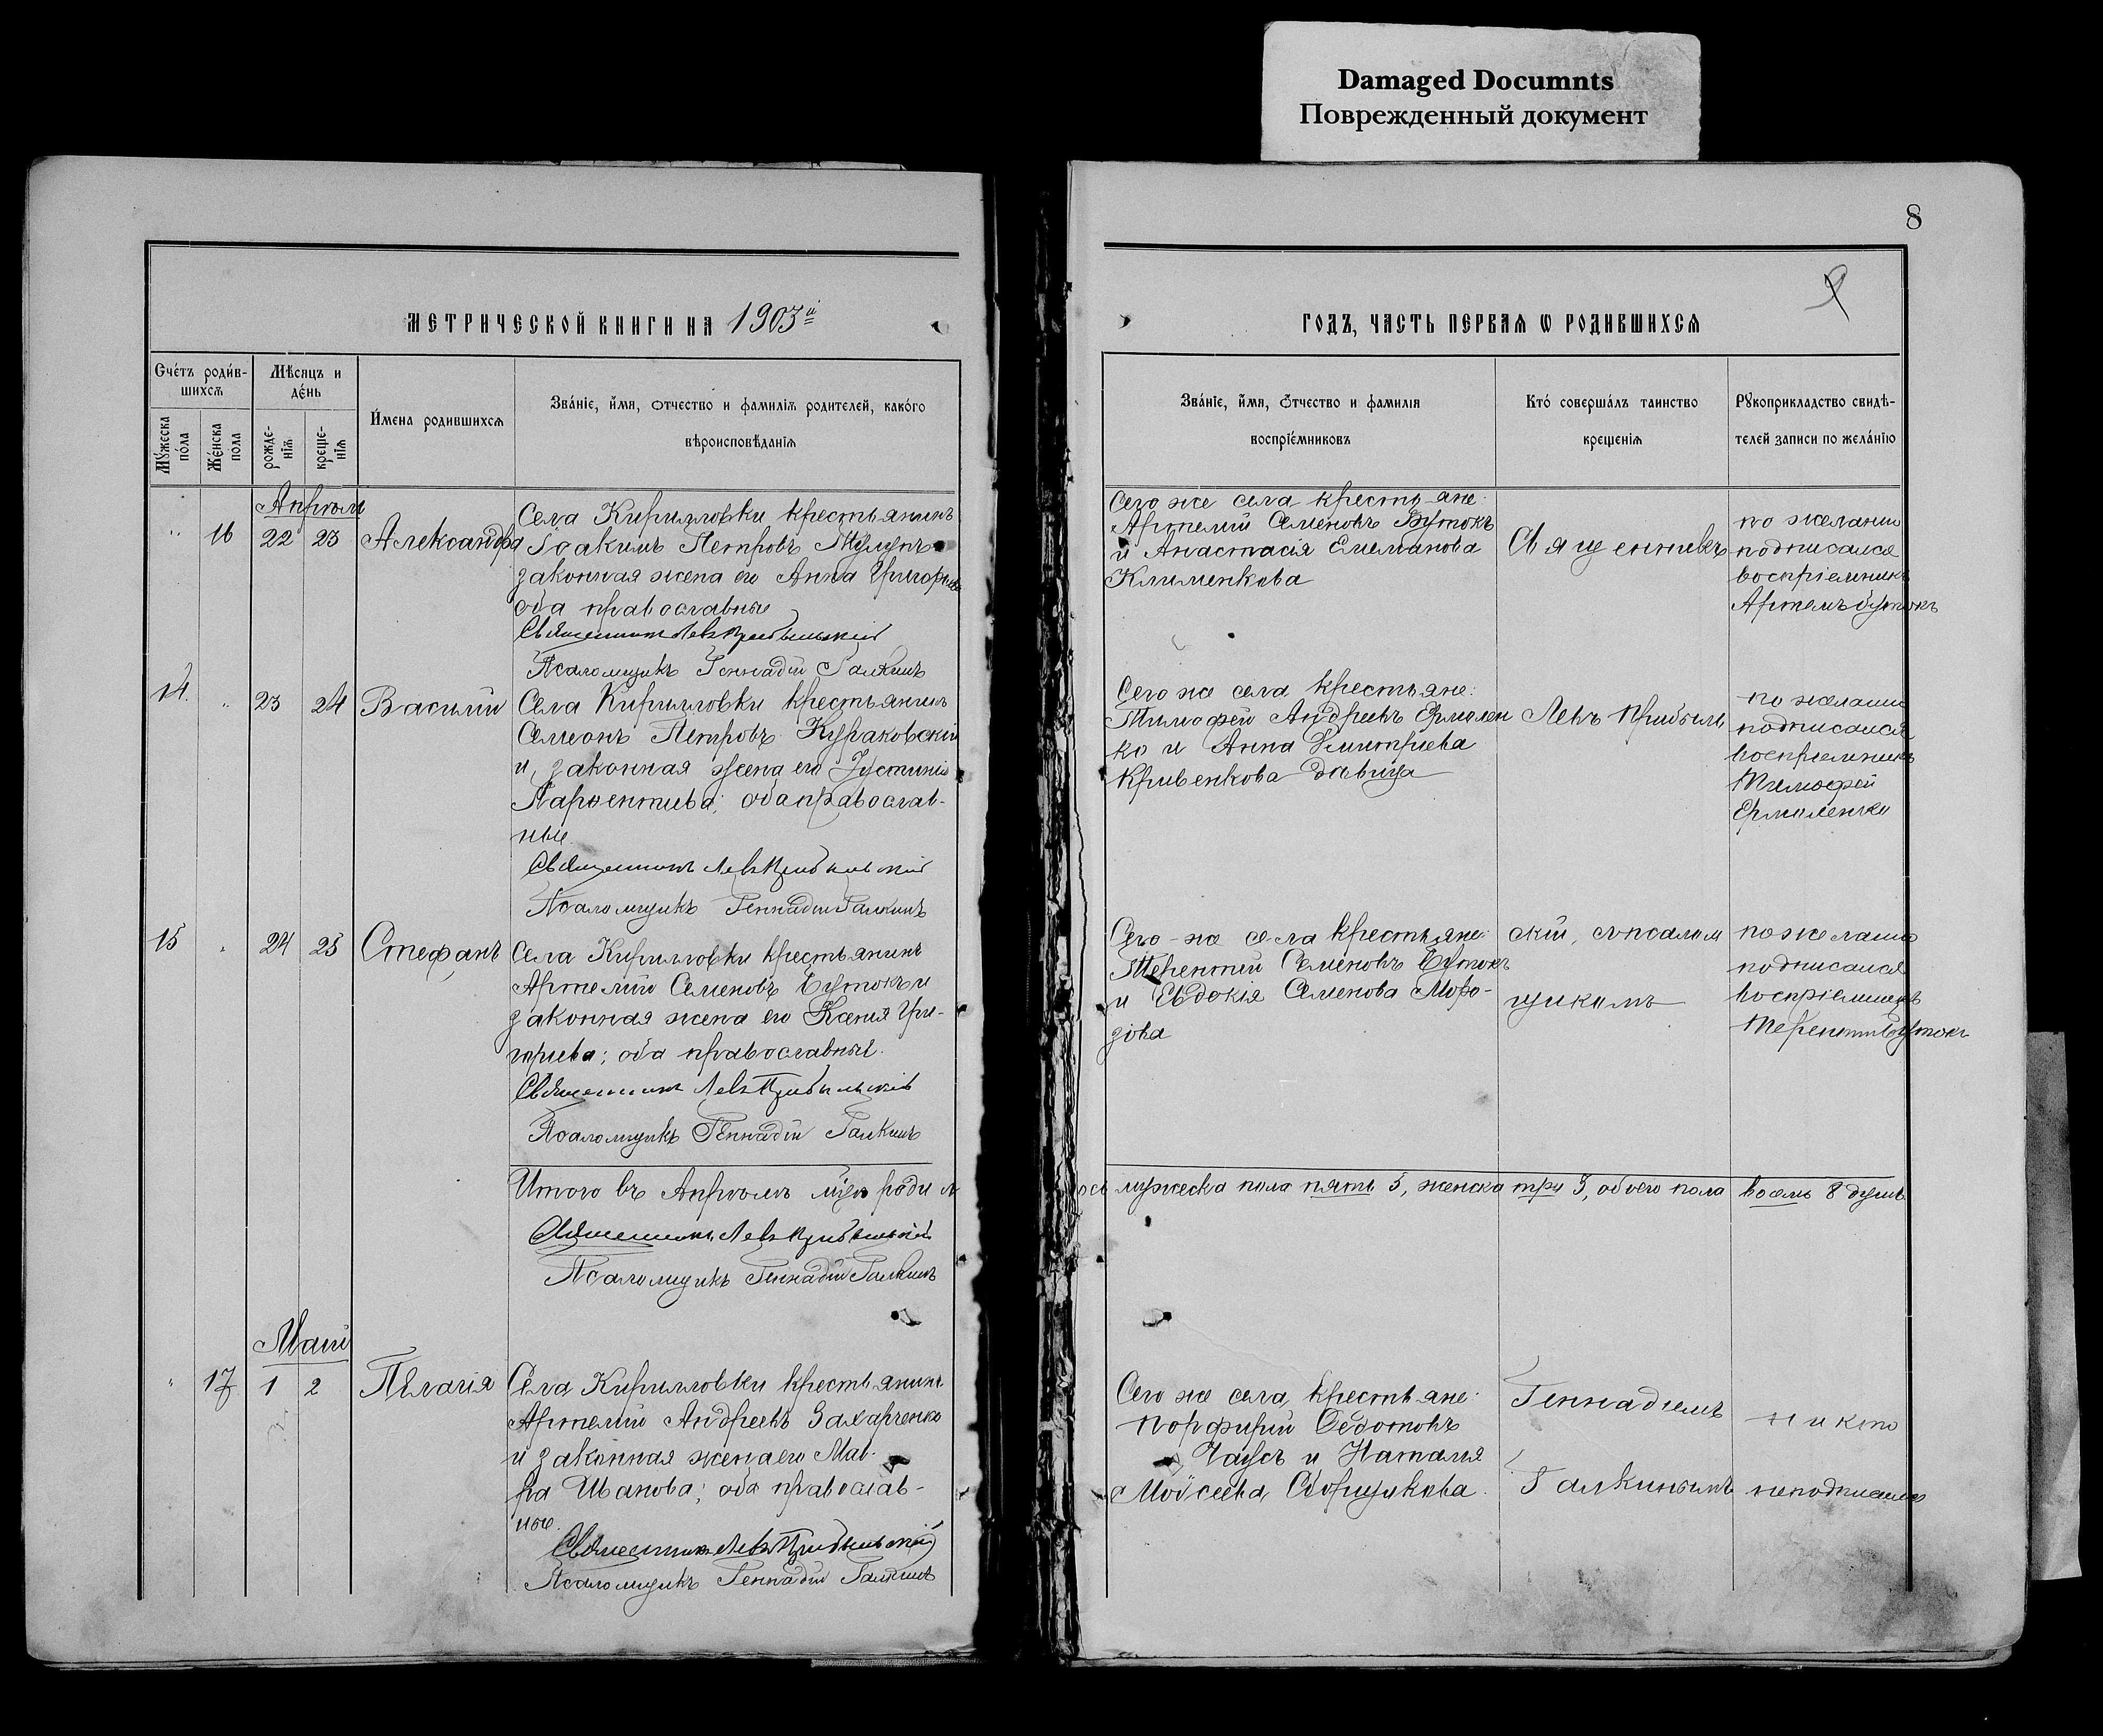 Damaged Documnts
Поврежденный документ
8
9
МЕТРИЧЕСКОЙ КНИГИ НА 1903й
Счетъ родив-
шихся
Мѣсяцъ и
день
Мужеска
пола
Женска
пола
рожде-
нія
креще-
нія
Имена родившихся
Званіе, имя, отчество и фамилія родителей, какого
вѣроисповѣданія
Апрѣль
16 22 23 Александра
Села Кирилловки крестьянинъ
Іоакимъ Петровъ
законная жена его Анна Григорьева
оба православные
Священникъ Левъ Прибыльскій
Псаломщикъ Геннадій Галкинъ
14 23 24 Василій
Села Кирилловки крестьянинъ
Симеонъ Петровъ Кураковскій
и законная жена его Іустинія
оба православ-
ные
Священникъ Левъ Прибыльскій
Псаломщикъ Геннадій Галкинъ
15 24 25 Стефанъ
Села Кирилловки крестьянинъ
Артемій Семеновъ Бутокъ и
законная жена его Ксенія
оба православные.
Священникъ Левъ Прибыльскій
Псаломщикъ Геннадій Галкинъ
Итого въ Апрѣлѣ мцѣ родил
Священникъ Левъ Прибыльскій
Псаломщикъ Геннадій Галкинъ
Маій
17 1 2 Пелагія
Села Кирилловки крестьянинъ
Артемій Андреевъ Захарченко
и законная жена его Мав-
ра Иванова; оба православ-
ные.
Священникъ Левъ Прибыльскій
Псаломщикъ Геннадій Галкинъ
ГОДЪ, ЧАСТЬ ПЕРВАЯ Ѡ РОДИВШИХСЯ
Званіе, имя, отчество и фамилія
воспріемниковъ
Кто совершалъ таинство
крещенія
Рукоприкладство свидѣ-
телей записи по желанію
Сего же села крестьяне:
Артемій Семеновъ Бутокъ
и Анастасія Емельянова
Клименкова
Священникъ
по желанію
подписался
воспріемникъ
Артемъ Бутокъ
Сего же села крестьяне:
Тимофей Андреевъ Ермолен
ко и Анна Димитріева
Кривенкова дѣвица
Левъ Прибыль
по желанію
подписался
воспріемникъ
Тимофей
Ермоленко
Сего-же села крестьяне:
Терентій Семеновъ Бутокъ
и Евдокія Семенова Моро-
зова
скій, съ псалом
щикомъ
по желанію
подписался
воспріемникъ
Терентій Бутокъ
ось мужеска пола пять 5, женска три 3, обоего пола восемь 8 душъ
Сего же села крестьяне:
Порфирій Ѳедотовъ
Чаусъ и Наталія
Моѵсеева Сборщикова.
Геннадіемъ
Галкинымъ
никто
неподписался